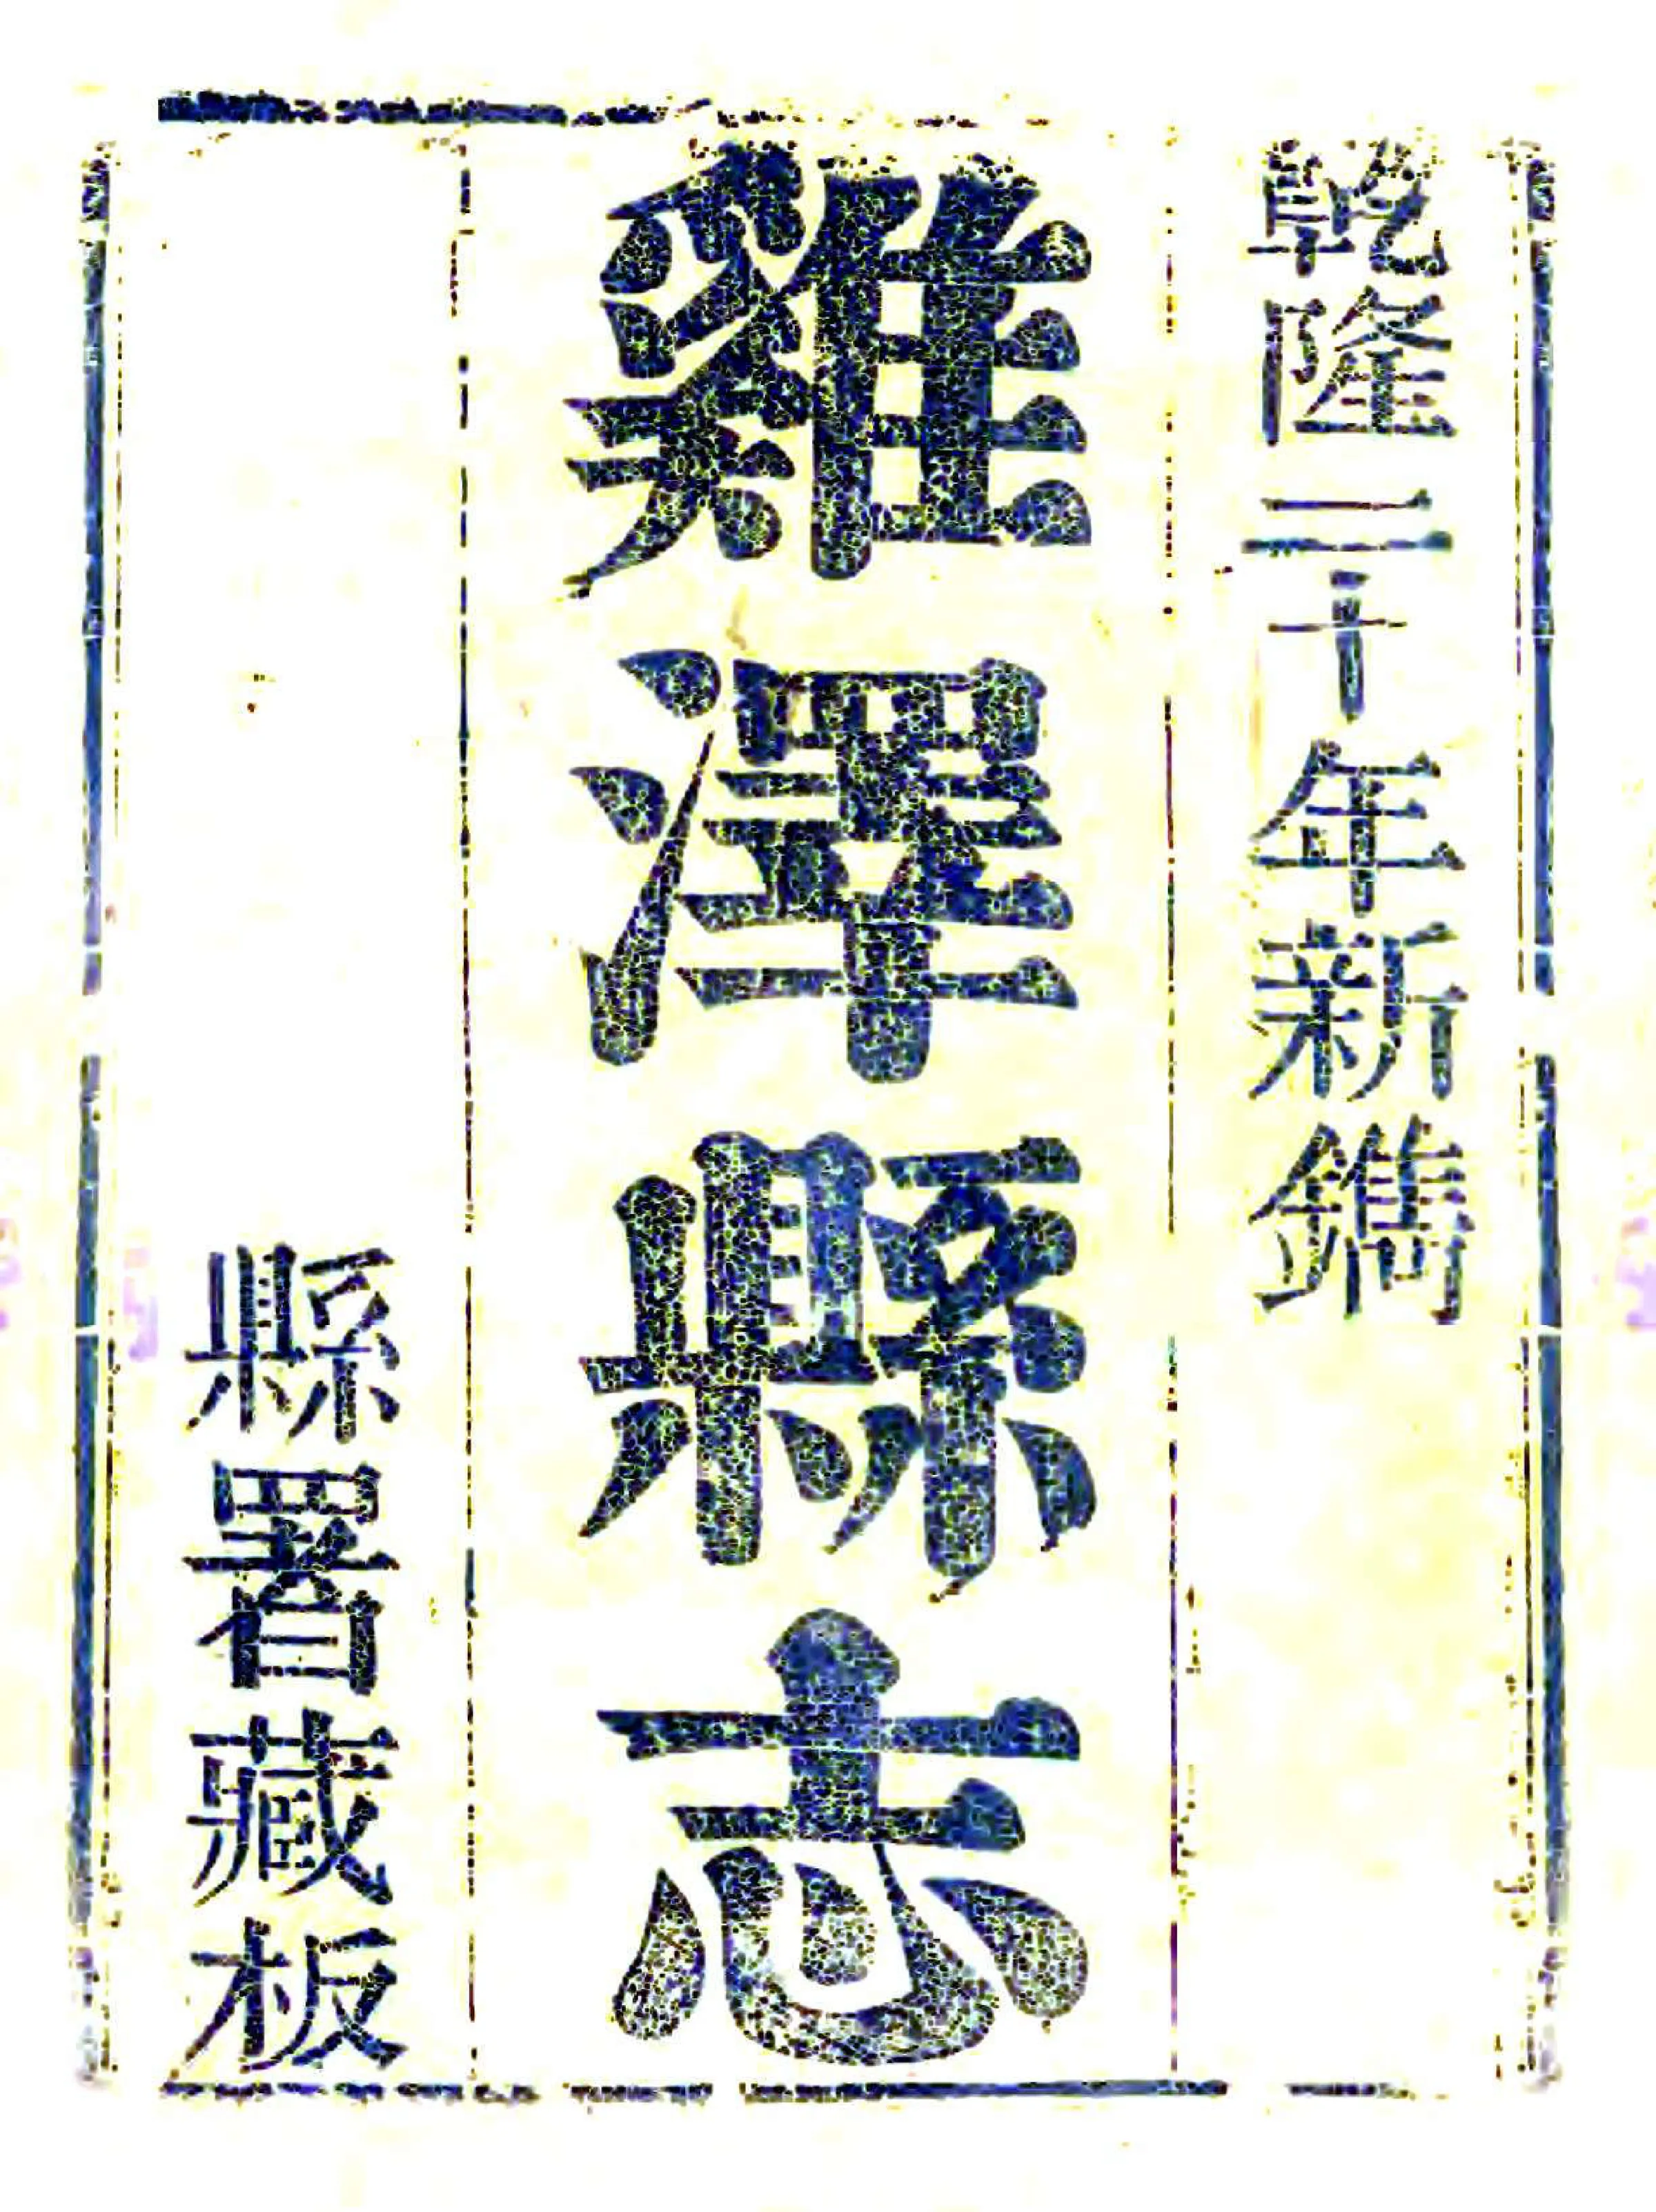 乾隆二十年新鐫
雞澤縣志
縣署藏板